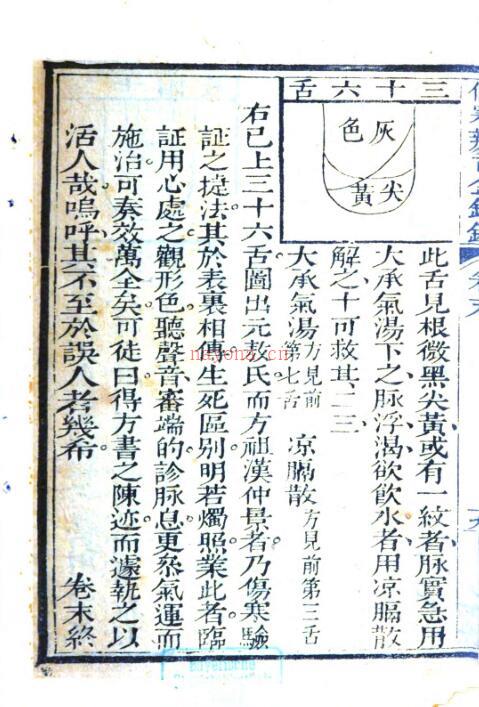 三十六舌
灰色
尖黃
此舌見根微黑尖黃或有一紋者脉實急用
大承氣湯下之脉浮渴欲飲水者用凉膈散
解之十可救其二三
大承氣湯方見前第七舌 凉膈散方見前第三舌
右已上三十六舌圖出元敖氏而方祖漢仲景者乃傷寒驗
証之捷法其於表裏相傳生死區别明若燭照業此者臨
証用心處之觀形色聽聲音審端的診脉息更叅氣運而
施治可奏效萬全矣可徒曰得方書之陳迹而遽執之以
活人哉嗚呼其不至於誤人者幾希 卷末終
nayona.cn